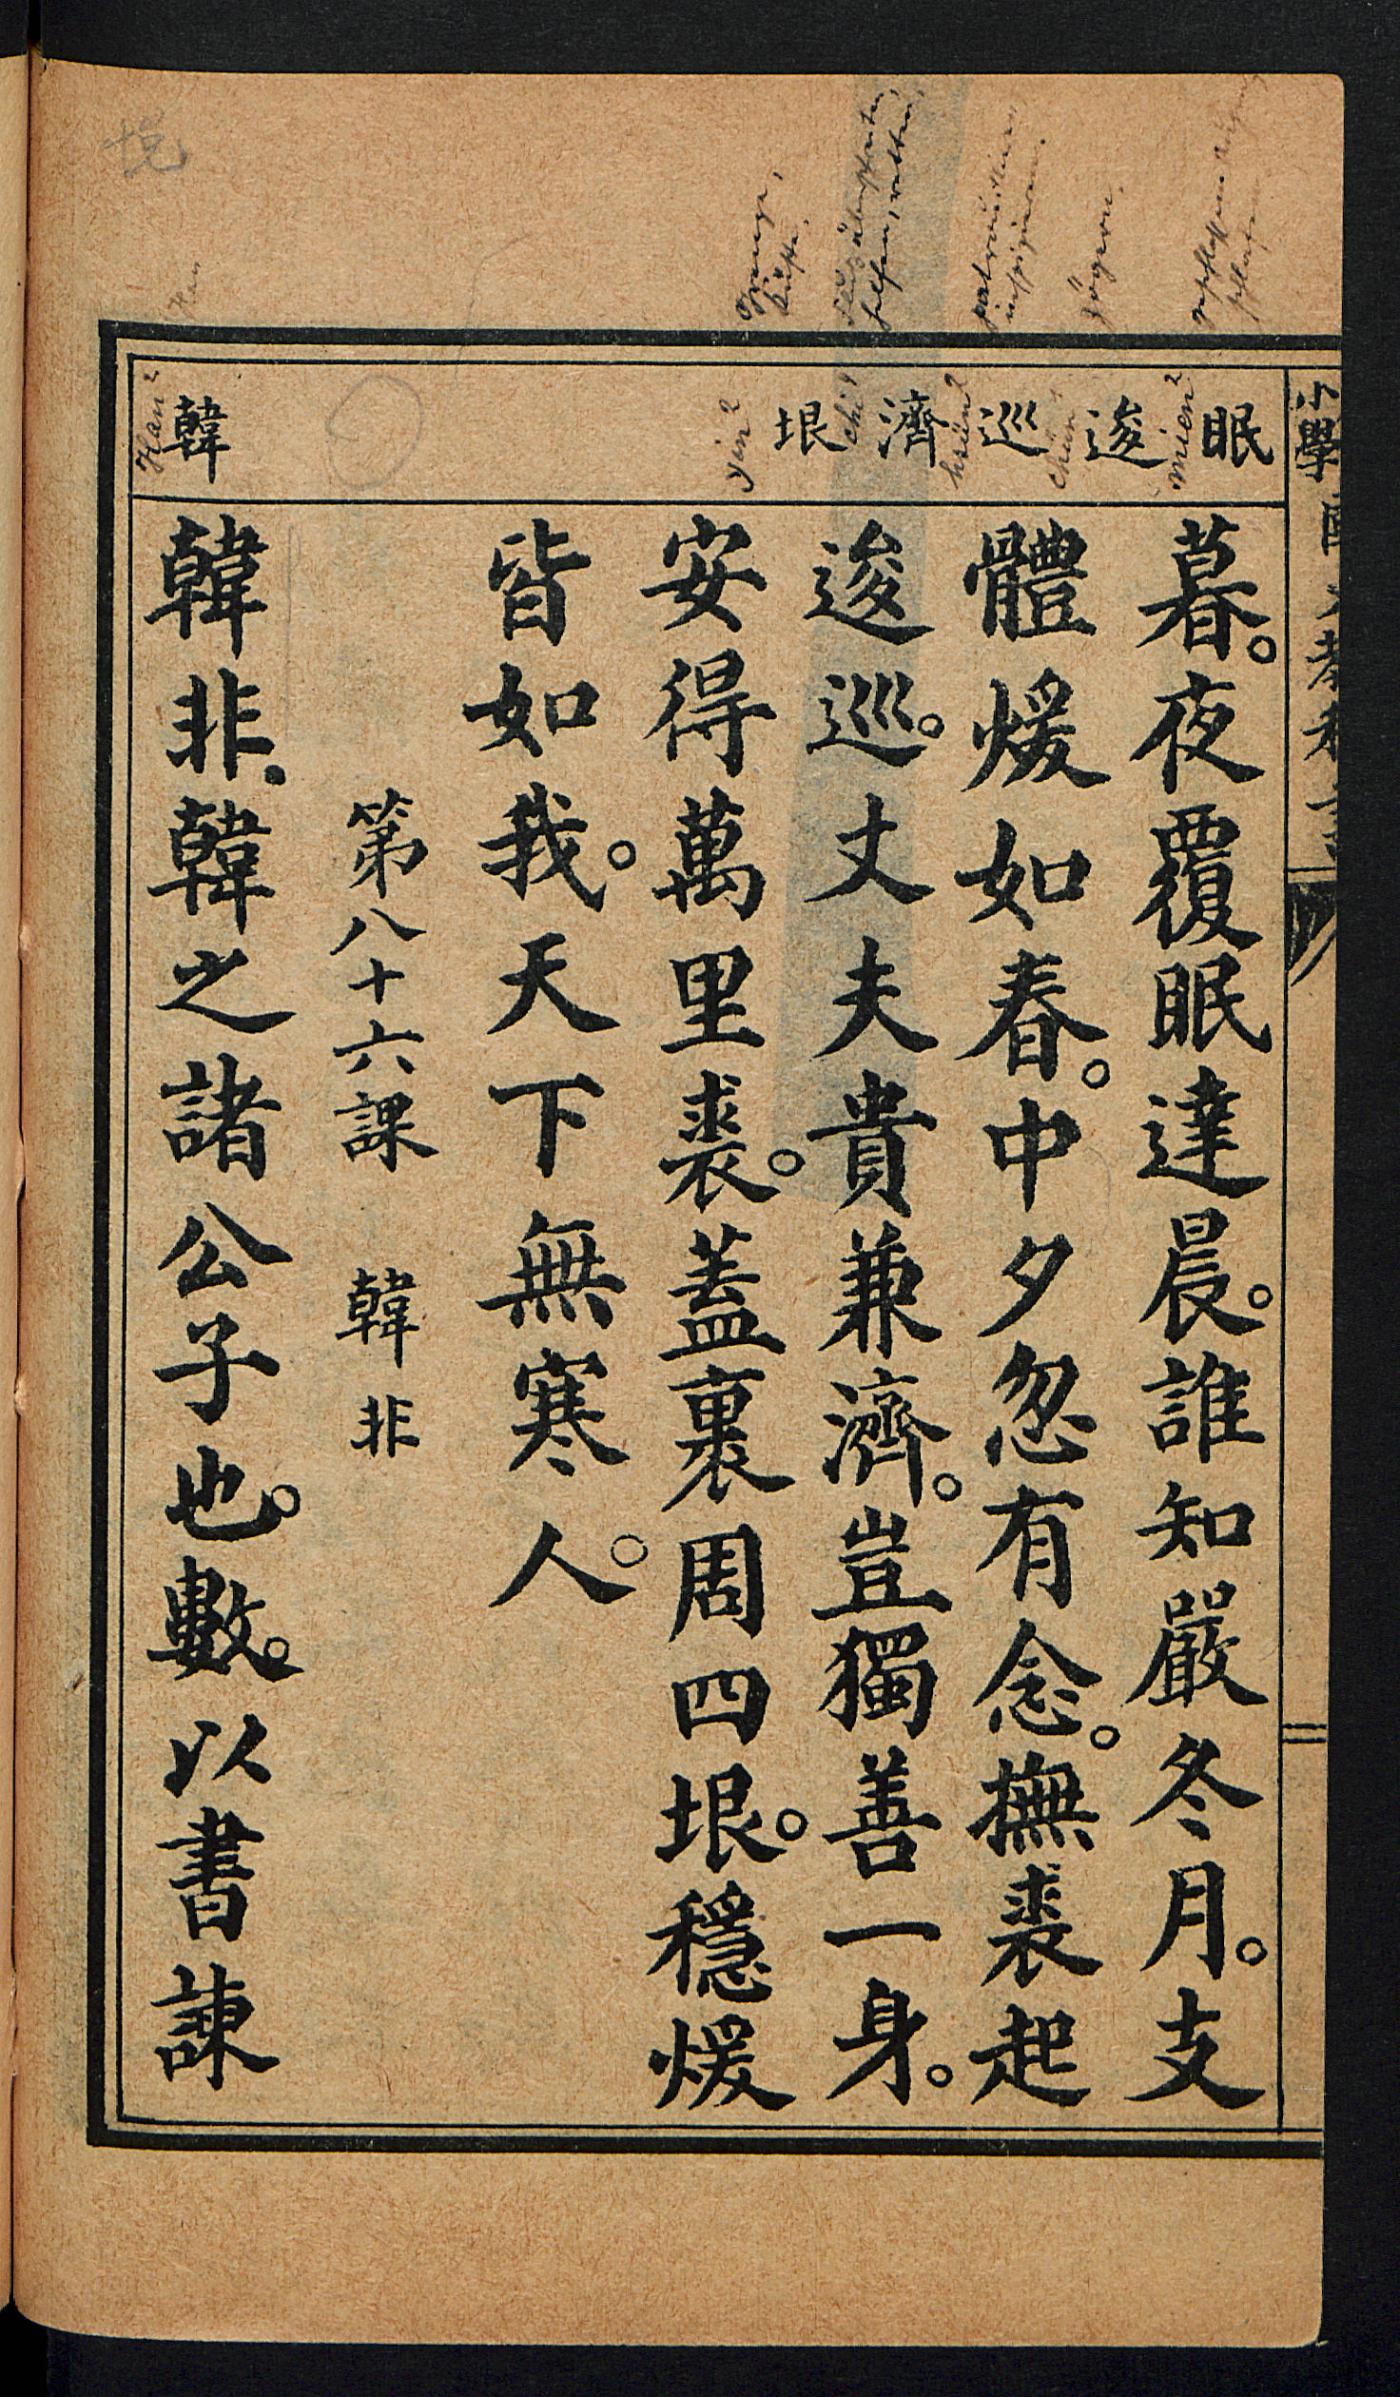 眠 逡 巡 濟 垠 韓
mien² chün¹ hsün² chi⁴ yin² Han²
暮。夜覆眠達晨。誰知嚴冬月。支
體煖如春。中夕忽有念。撫裘起
逡巡。丈夫貴兼濟。豈獨善一身。
安得萬里裘。蓋裹周四垠。穩煖
皆如我。天下無寒人。
第八十六課 韓非
韓非、韓之諸公子也。數。以書諫
小學
zögern.